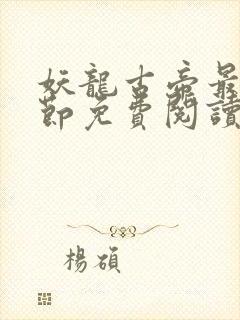 妖龍古帝最
節免費閱讀
楊碩